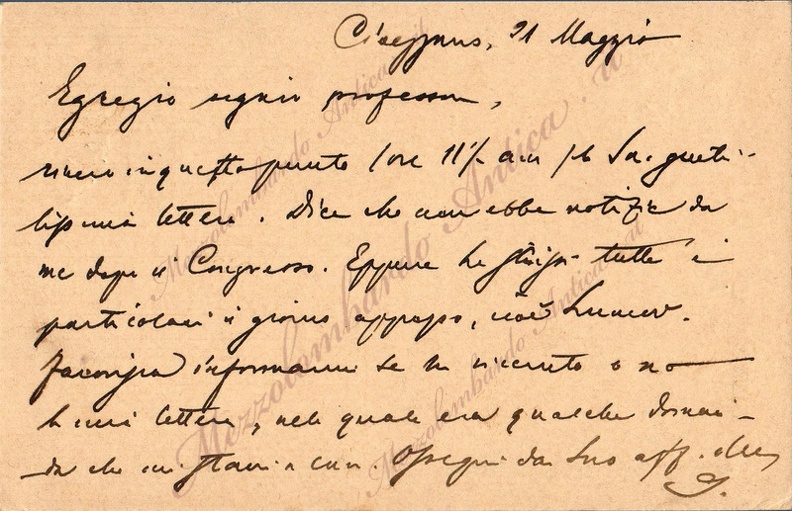 21 Maggio
Egregio signor professore,
ricevo in questo punto (ore 11½ am) la Sua
lettera. Dice che non ebbe notizie da
me dopo il Congresso. Eppure Le tutti i
particolari il giorno appresso, cioè
Favorisca informarmi se ha ricevuto o no
la mia lettera, nella quale era qualche doman-
da che mi stava a cuore. Ossequi dal Suo aff.
Mezzolombardo Antica